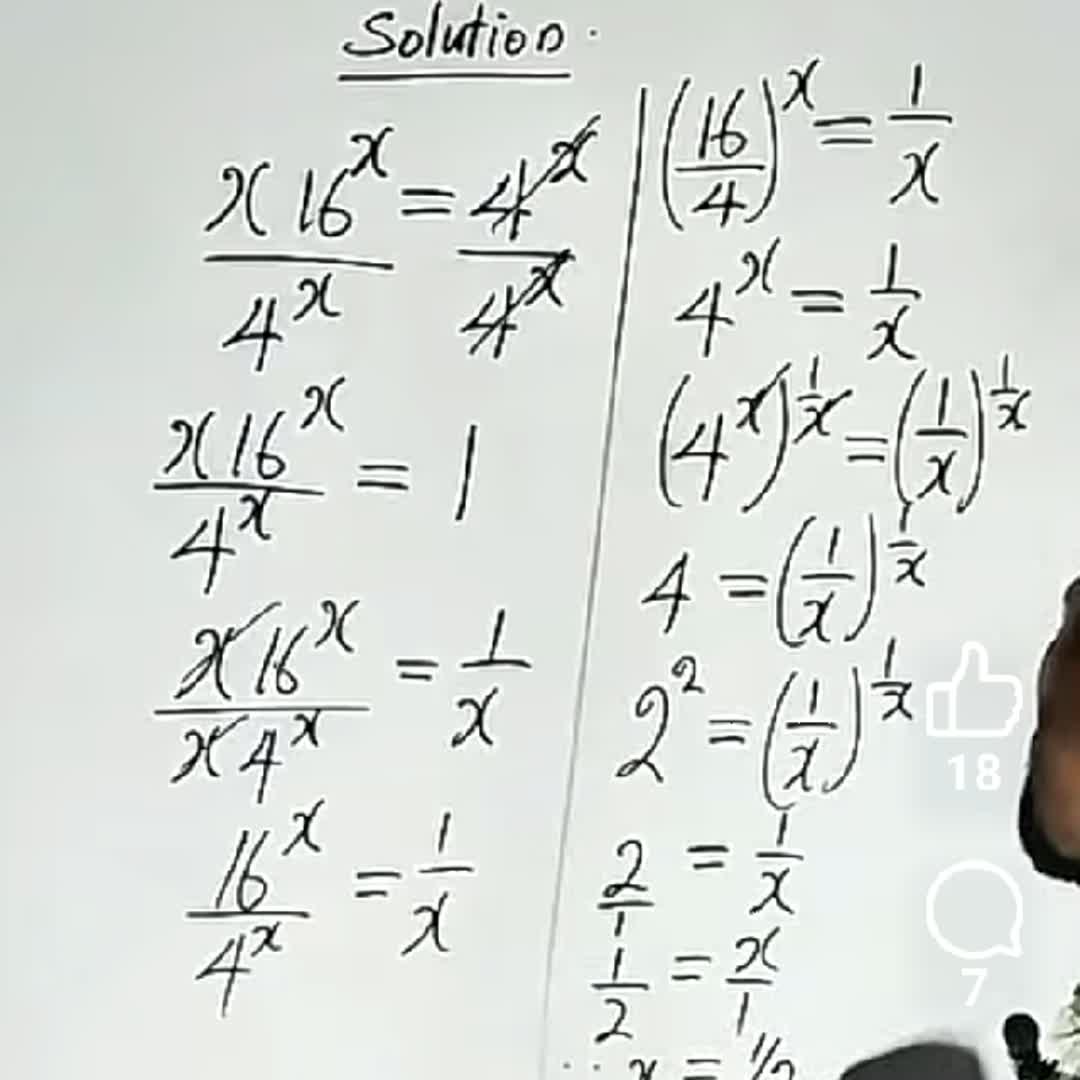 Solution.
x16^x/4^x = 4^x/4^x
x16^x/4^x = 1
x16^x/x4^x = 1/x
16^x/4^x = 1/x
(16/4)^x = 1/x
4^x = 1/x
(4^x)^1/x = (1/x)^1/x
4 = (1/x)^1/x
2^2 = (1/x)^1/x
2/1 = 1/x
1/2 = x/1
∴ x = 1/2
18
7